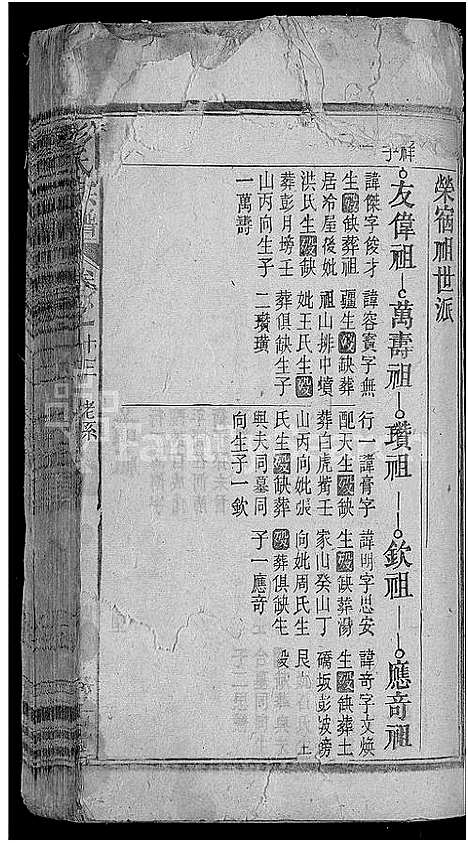 榮宿祖世派
友偉祖 萬壽祖 瓚祖 欽祖 應奇祖
諱傑字俊才
生歿缺葬祖
居冷屋後妣
洪氏生歿缺
葬彭月塝壬
山丙向生子
一萬壽
諱容賓字無
疆生歿缺葬
祖山排中墳
妣王氏生歿
葬俱缺生子
二瓚璜
行一諱膏字
配天生歿缺
葬白虎嘴壬
山丙向妣張
氏生歿缺葬
與夫同墓同
向生子一欽
諱明字思安
生歿缺葬
家山癸山丁
向妣周氏生
歿葬俱缺生
子一應奇
諱奇字文煥
生歿缺葬土
橋坂彭坡塝
艮
歿
氏族譜 卷之 十三 老系